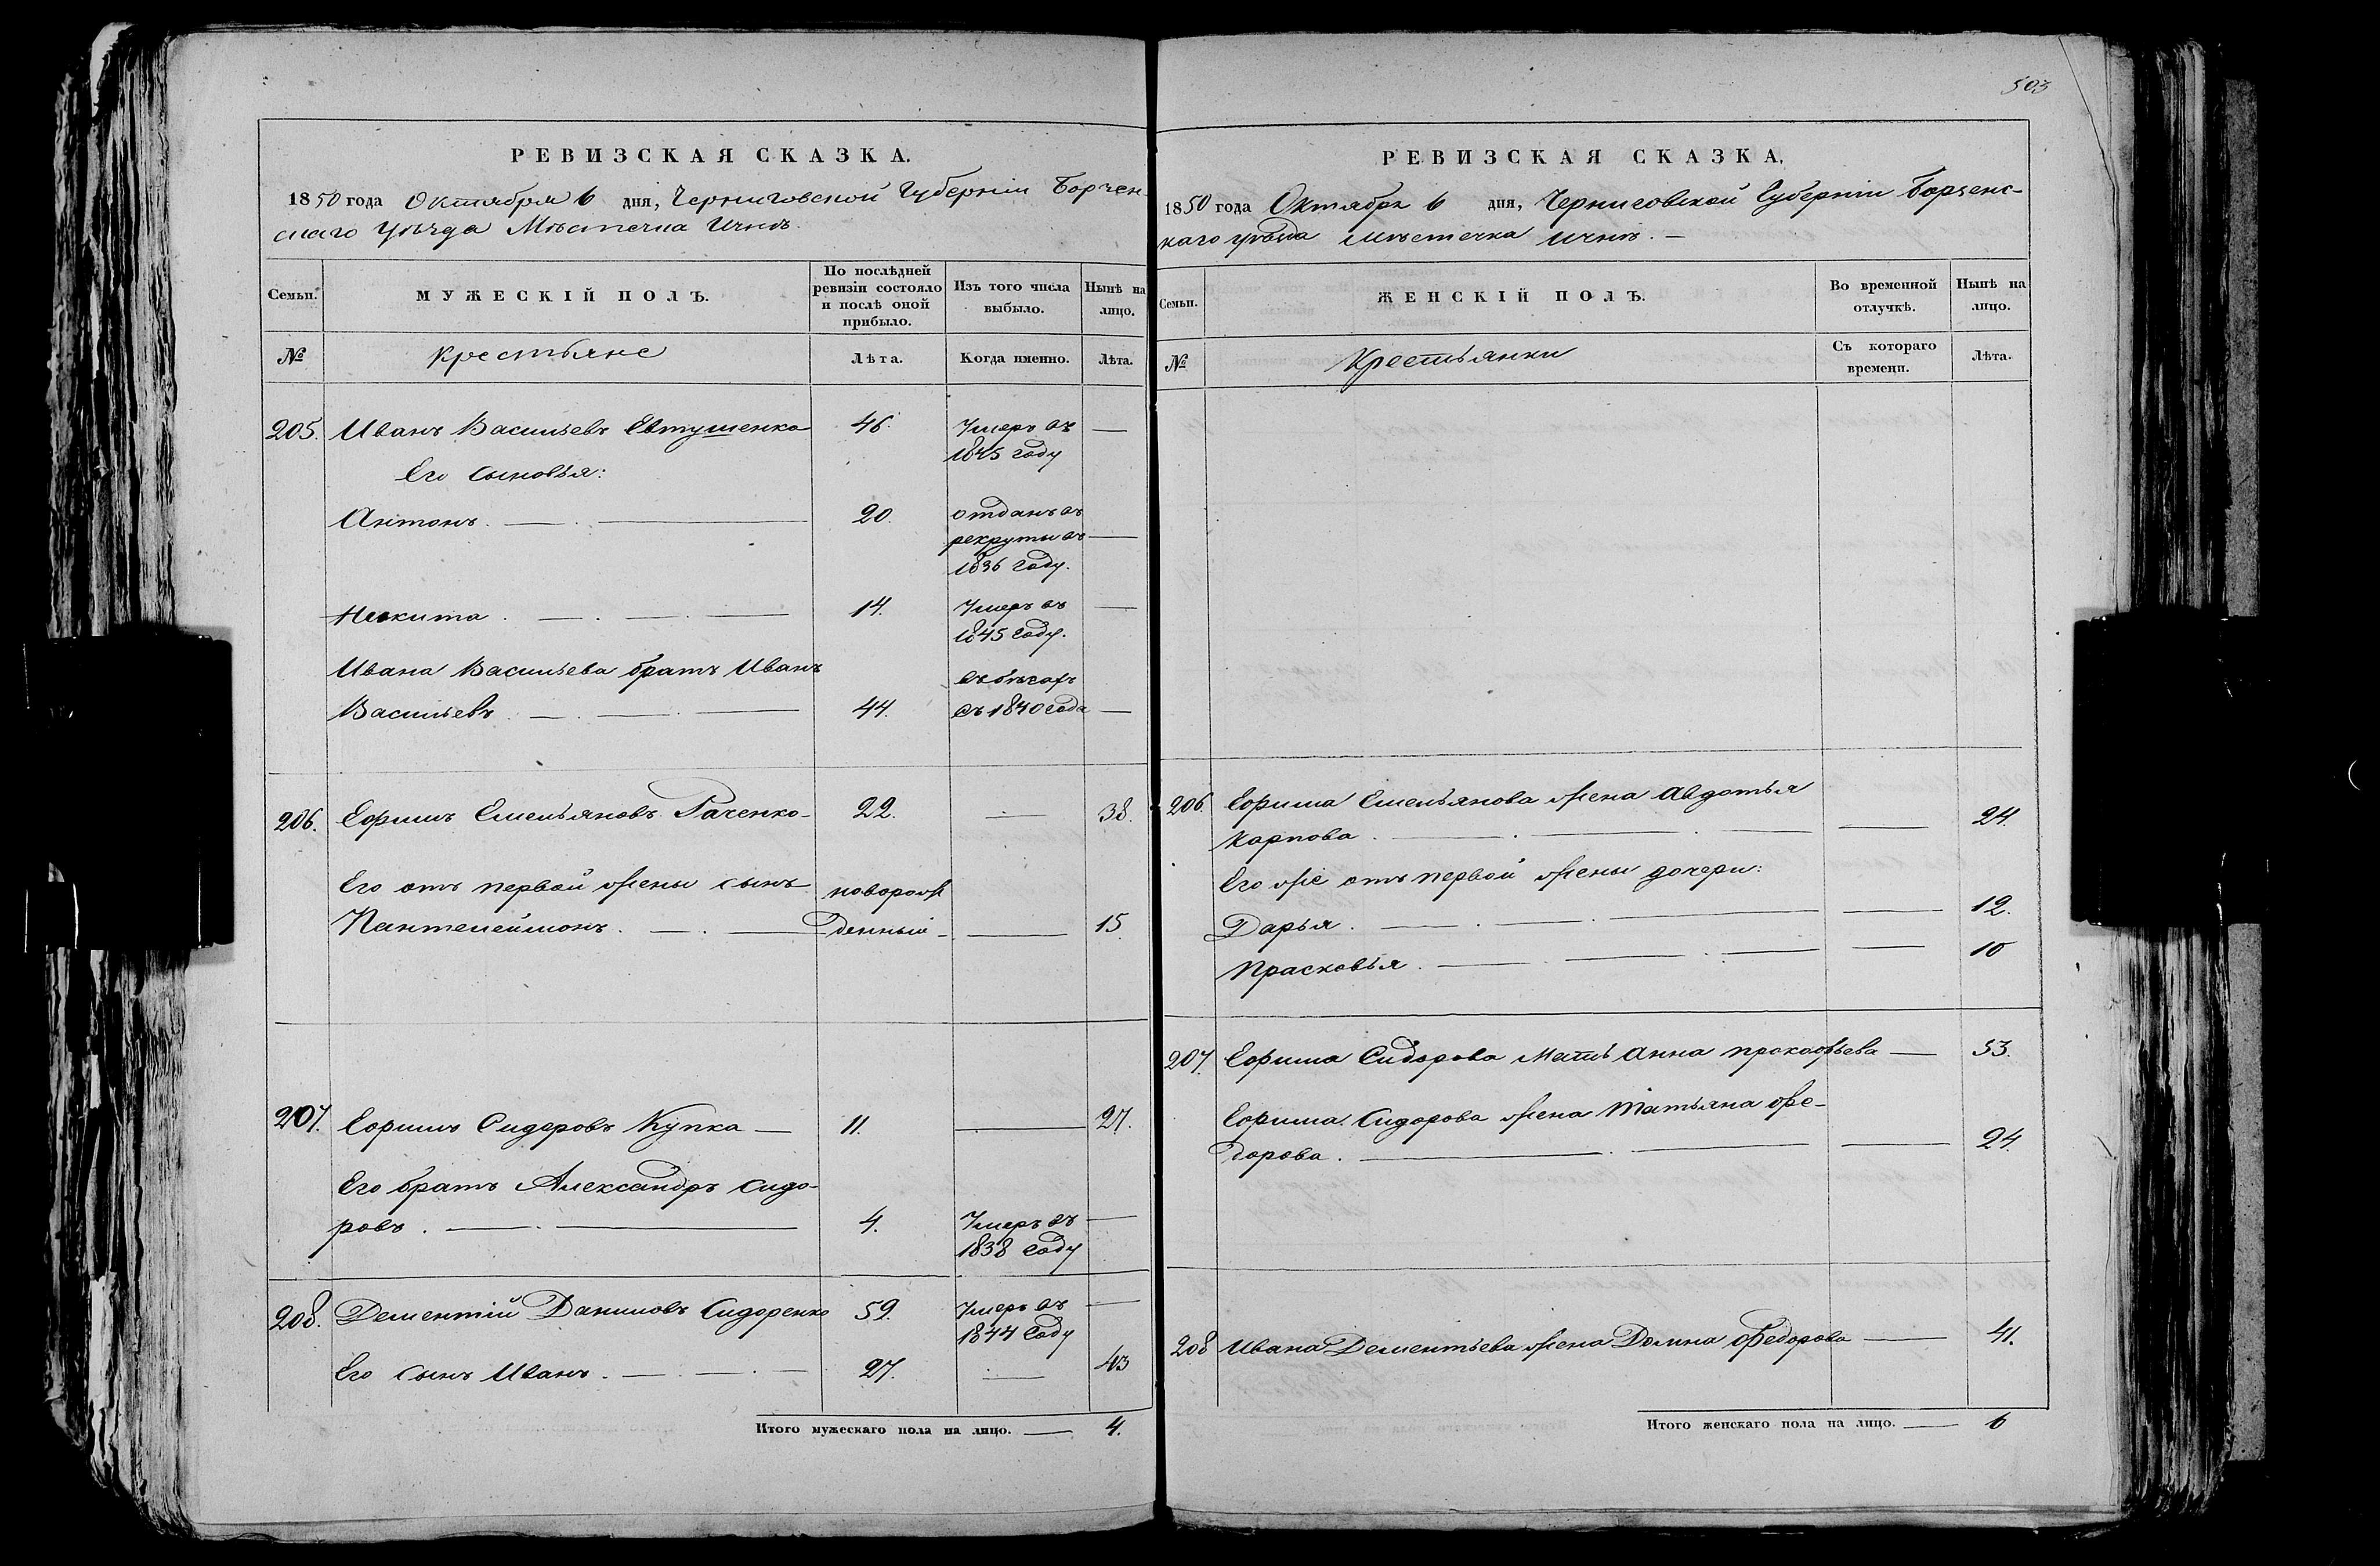 РЕВИЗСКАЯ СКАЗКА.
1850 года Октября 6 дня, Черниговской Губерніи Борзен-
скаго уѣзда Мѣстечка Ични.
Семьи.
МУЖЕСКІЙ ПОЛЪ.
По послѣдней ревизіи состояло и послѣ оной прибыло.
Изъ того числа выбыло.
Нынѣ на лицо.
№
Крестьяне
Лѣта.
Когда именно.
Лѣта.
205. Иванъ Васильевъ Евтушенко 46. Умеръ въ —
1845 году
Его сыновья:
Антонъ. — 20. отданъ въ
рекруты въ —
1836 году.
Никита. — 14. Умеръ въ —
1845 году.
Ивана Васильева братъ Иванъ въ бѣгахъ
Васильевъ. — 44. съ 1840 года —
206. Ефимъ Емельяновъ Раченко — 22. — 38.
Его отъ первой жены сынъ новорож
Пантелеймонъ. — денный — 15.
207. Ефимъ Сидоровъ Купка — 11. — 27.
Его братъ Александръ Сидо-
ровъ. — 4. Умеръ въ —
1838 году
208. Дементій Даниловъ Сидоренко 59. Умеръ въ —
1844 году
Его сынъ Иванъ. — 27. — 43
Итого мужескаго пола на лицо. — 4.
503
РЕВИЗСКАЯ СКАЗКА.
1850 года Октября 6 дня, Черниговской Губерніи Борзенс-
каго уѣзда Мѣстечка Ични. —
Семьи.
ЖЕНСКІЙ ПОЛЪ.
Во временной отлучкѣ.
Нынѣ на лицо.
№
Крестьянки
Съ котораго времени.
Лѣта.
206. Ефима Емельянова жена Авдотья
Карпова. — 24.
Его же отъ первой жены дочери:
Дарья. — 12.
Прасковья. — 10
207. Ефима Сидорова мать Анна Прокофьева — 53.
Ефима Сидорова жена Татьяна Фе-
дорова. — 24.
208 Ивана Дементьева жена Домна Федорова — 41.
Итого женскаго пола на лицо. — 6